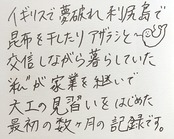 イギリスで夢破れ、利尻島で
昆布を干したりアザラシと〜
交信しながら暮らしていた
"私"が家業を継いで
大工の見習いをはじめた
最初の数ヶ月の記録です。